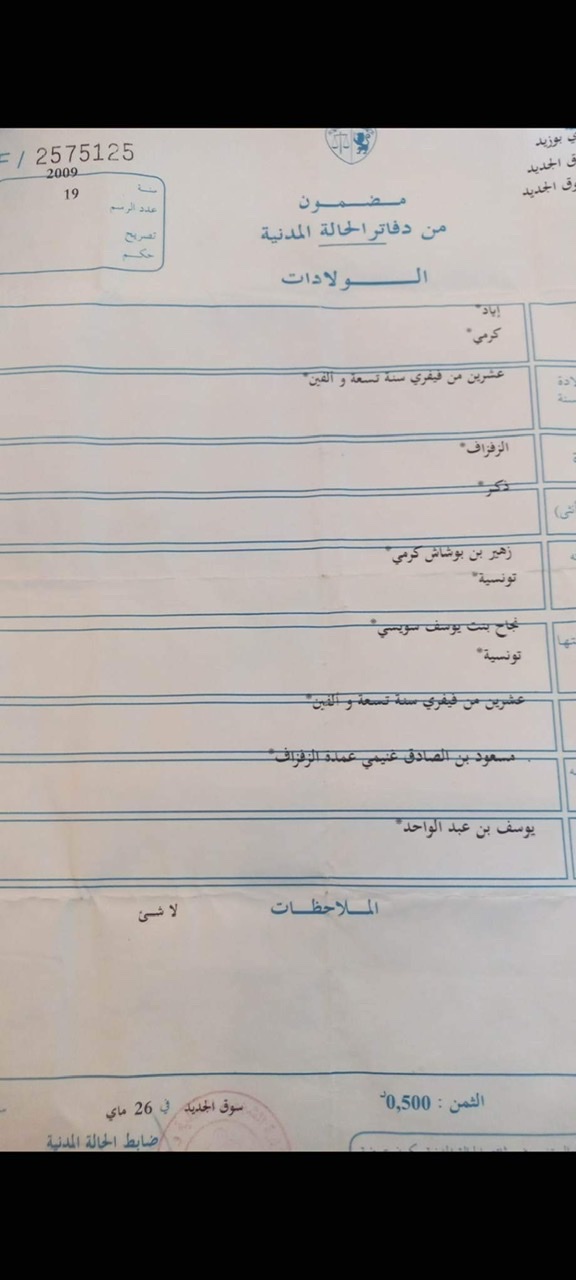 F/ 2575125
بوزيد
الجديد
الجديد
2009
سنة
19
عدد الرسم
تصريح
حكم
مضمون
من دفاتر الحالة المدنية
الولادات
إياد*
كرمي*
عشرين من فيفري سنة تسعة و ألفين*
الزفزاف*
ذكر*
زهير بن بوشاش كرمي*
تونسية*
نجاح بنت يوسف سويسي*
تونسية*
عشرين من فيفري سنة تسعة و ألفين*
مسعود بن الصادق غنيمي عمدة الزفزاف*
يوسف بن عبد الواحد*
الملاحظات
لا شئ
الثمن : 0,500د
سوق الجديد في 26 ماي
ضابط الحالة المدنية